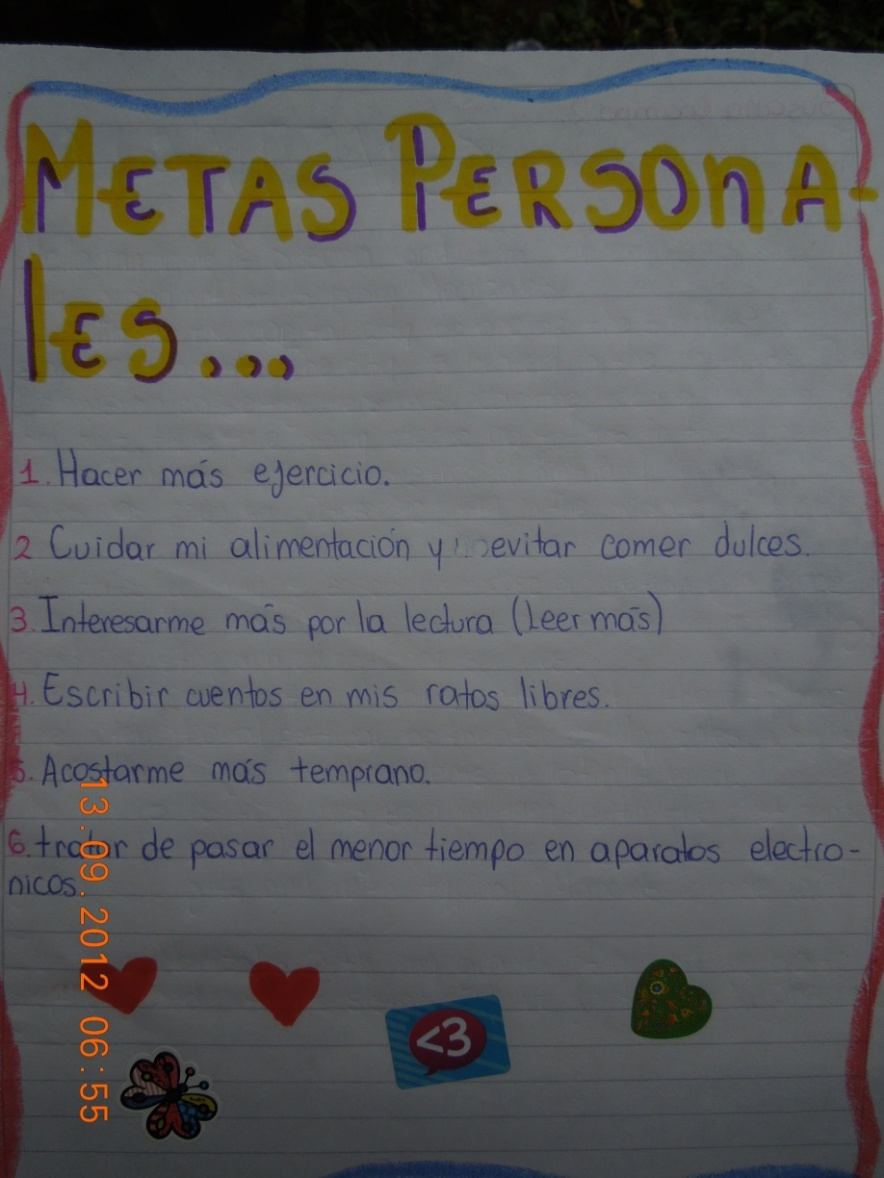 METAS PERSONA-
lES...
1. Hacer más ejercicio.
2 Cuidar mi alimentación y evitar comer dulces.
3. Interesarme más por la lectura (Leer más)
4. Escribir cuentos en mis ratos libres.
5. Acostarme más temprano.
6. tratar de pasar el menor tiempo en aparatos electro-
nicos.
<3
13.09.2012 06:55